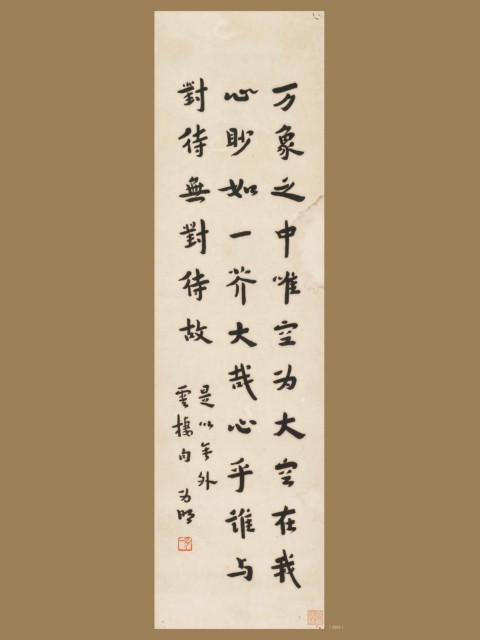 万象之中唯空为大空在我
心眇如一芥大哉心乎誰与
對待無對待故
是以無外
雲橋向